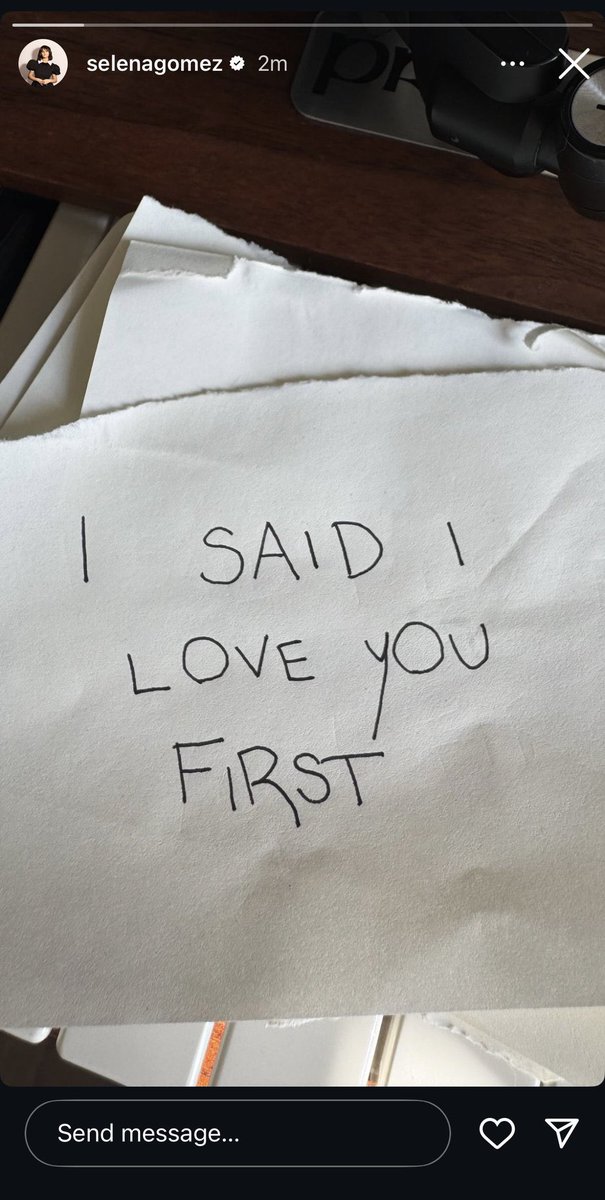 selenagomez 2m
pr
I SAID I
LOVE YOU
FIRST
Send message...